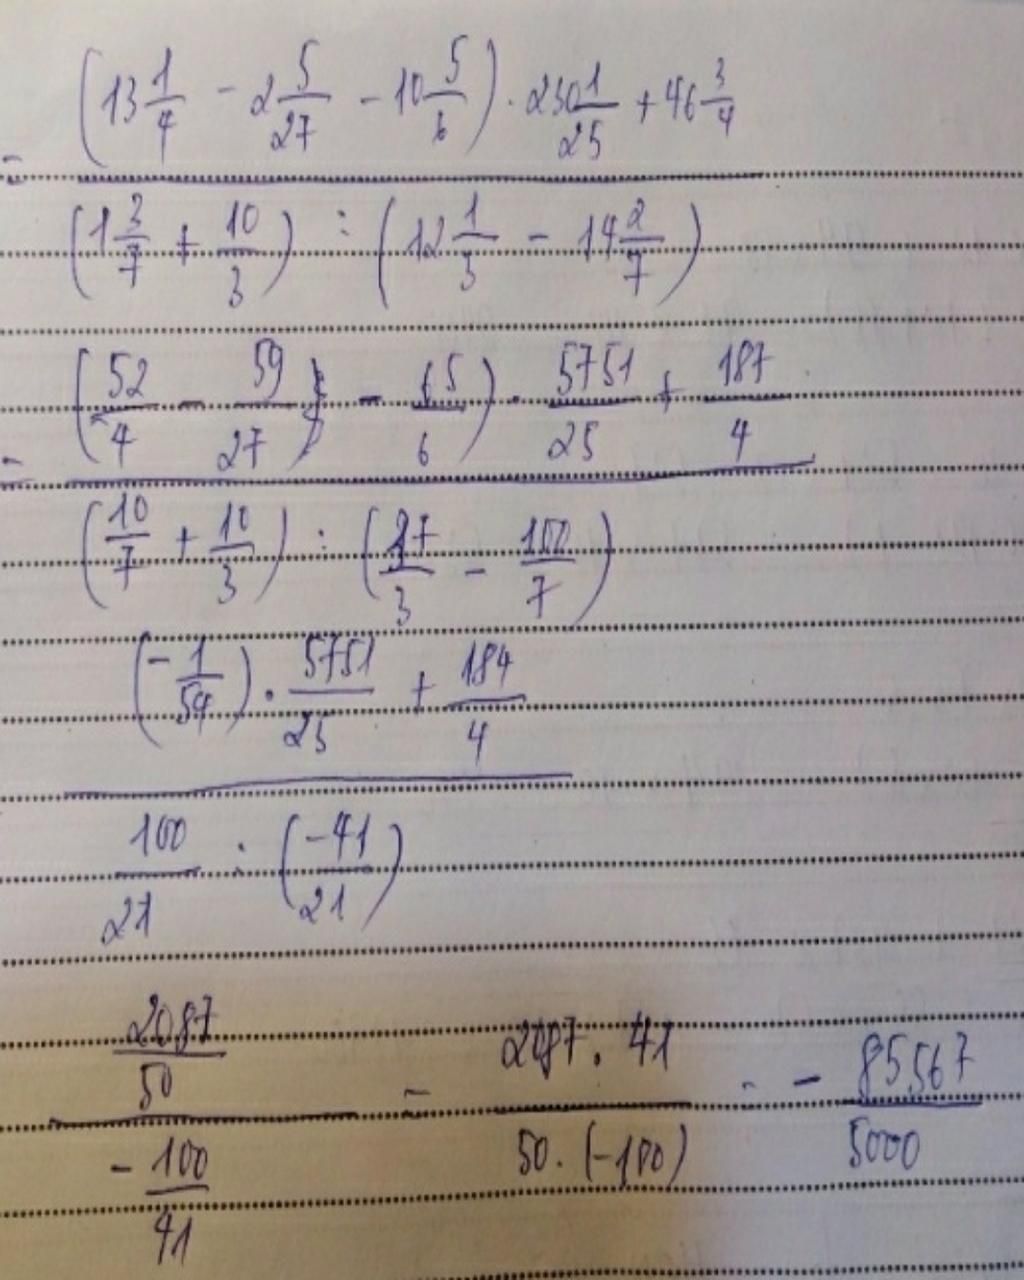 (13 1/4 - 2 5/27 - 10 5/6) · 230 1/25 + 46 3/4
=
(1 3/7 + 10/3) : (12 1/3 - 14 2/7)
(52/4 - 59/27) - 65/6) · 5751/25 + 187/4
=
(10/7 + 10/3) : (37/3 - 100/7)
(-1/54) · 5751/25 + 184/4
100/21 : (-41/21)
2087/50 / -100/41 = 2087 · 41 / 50 · (-100) = - 85567/5000